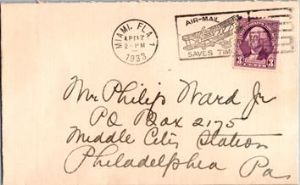 MIAMI, FLA. 1
APR 12
2-PM
1933
AIR-MAIL
SAVES TIME
3 CENTS 3
Mr Philip Ward Jr
PO Box 2175
Middle City Station
Philadelphia Pa